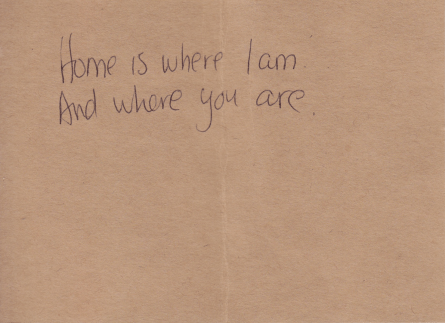 Home is where I am.
And where you are.